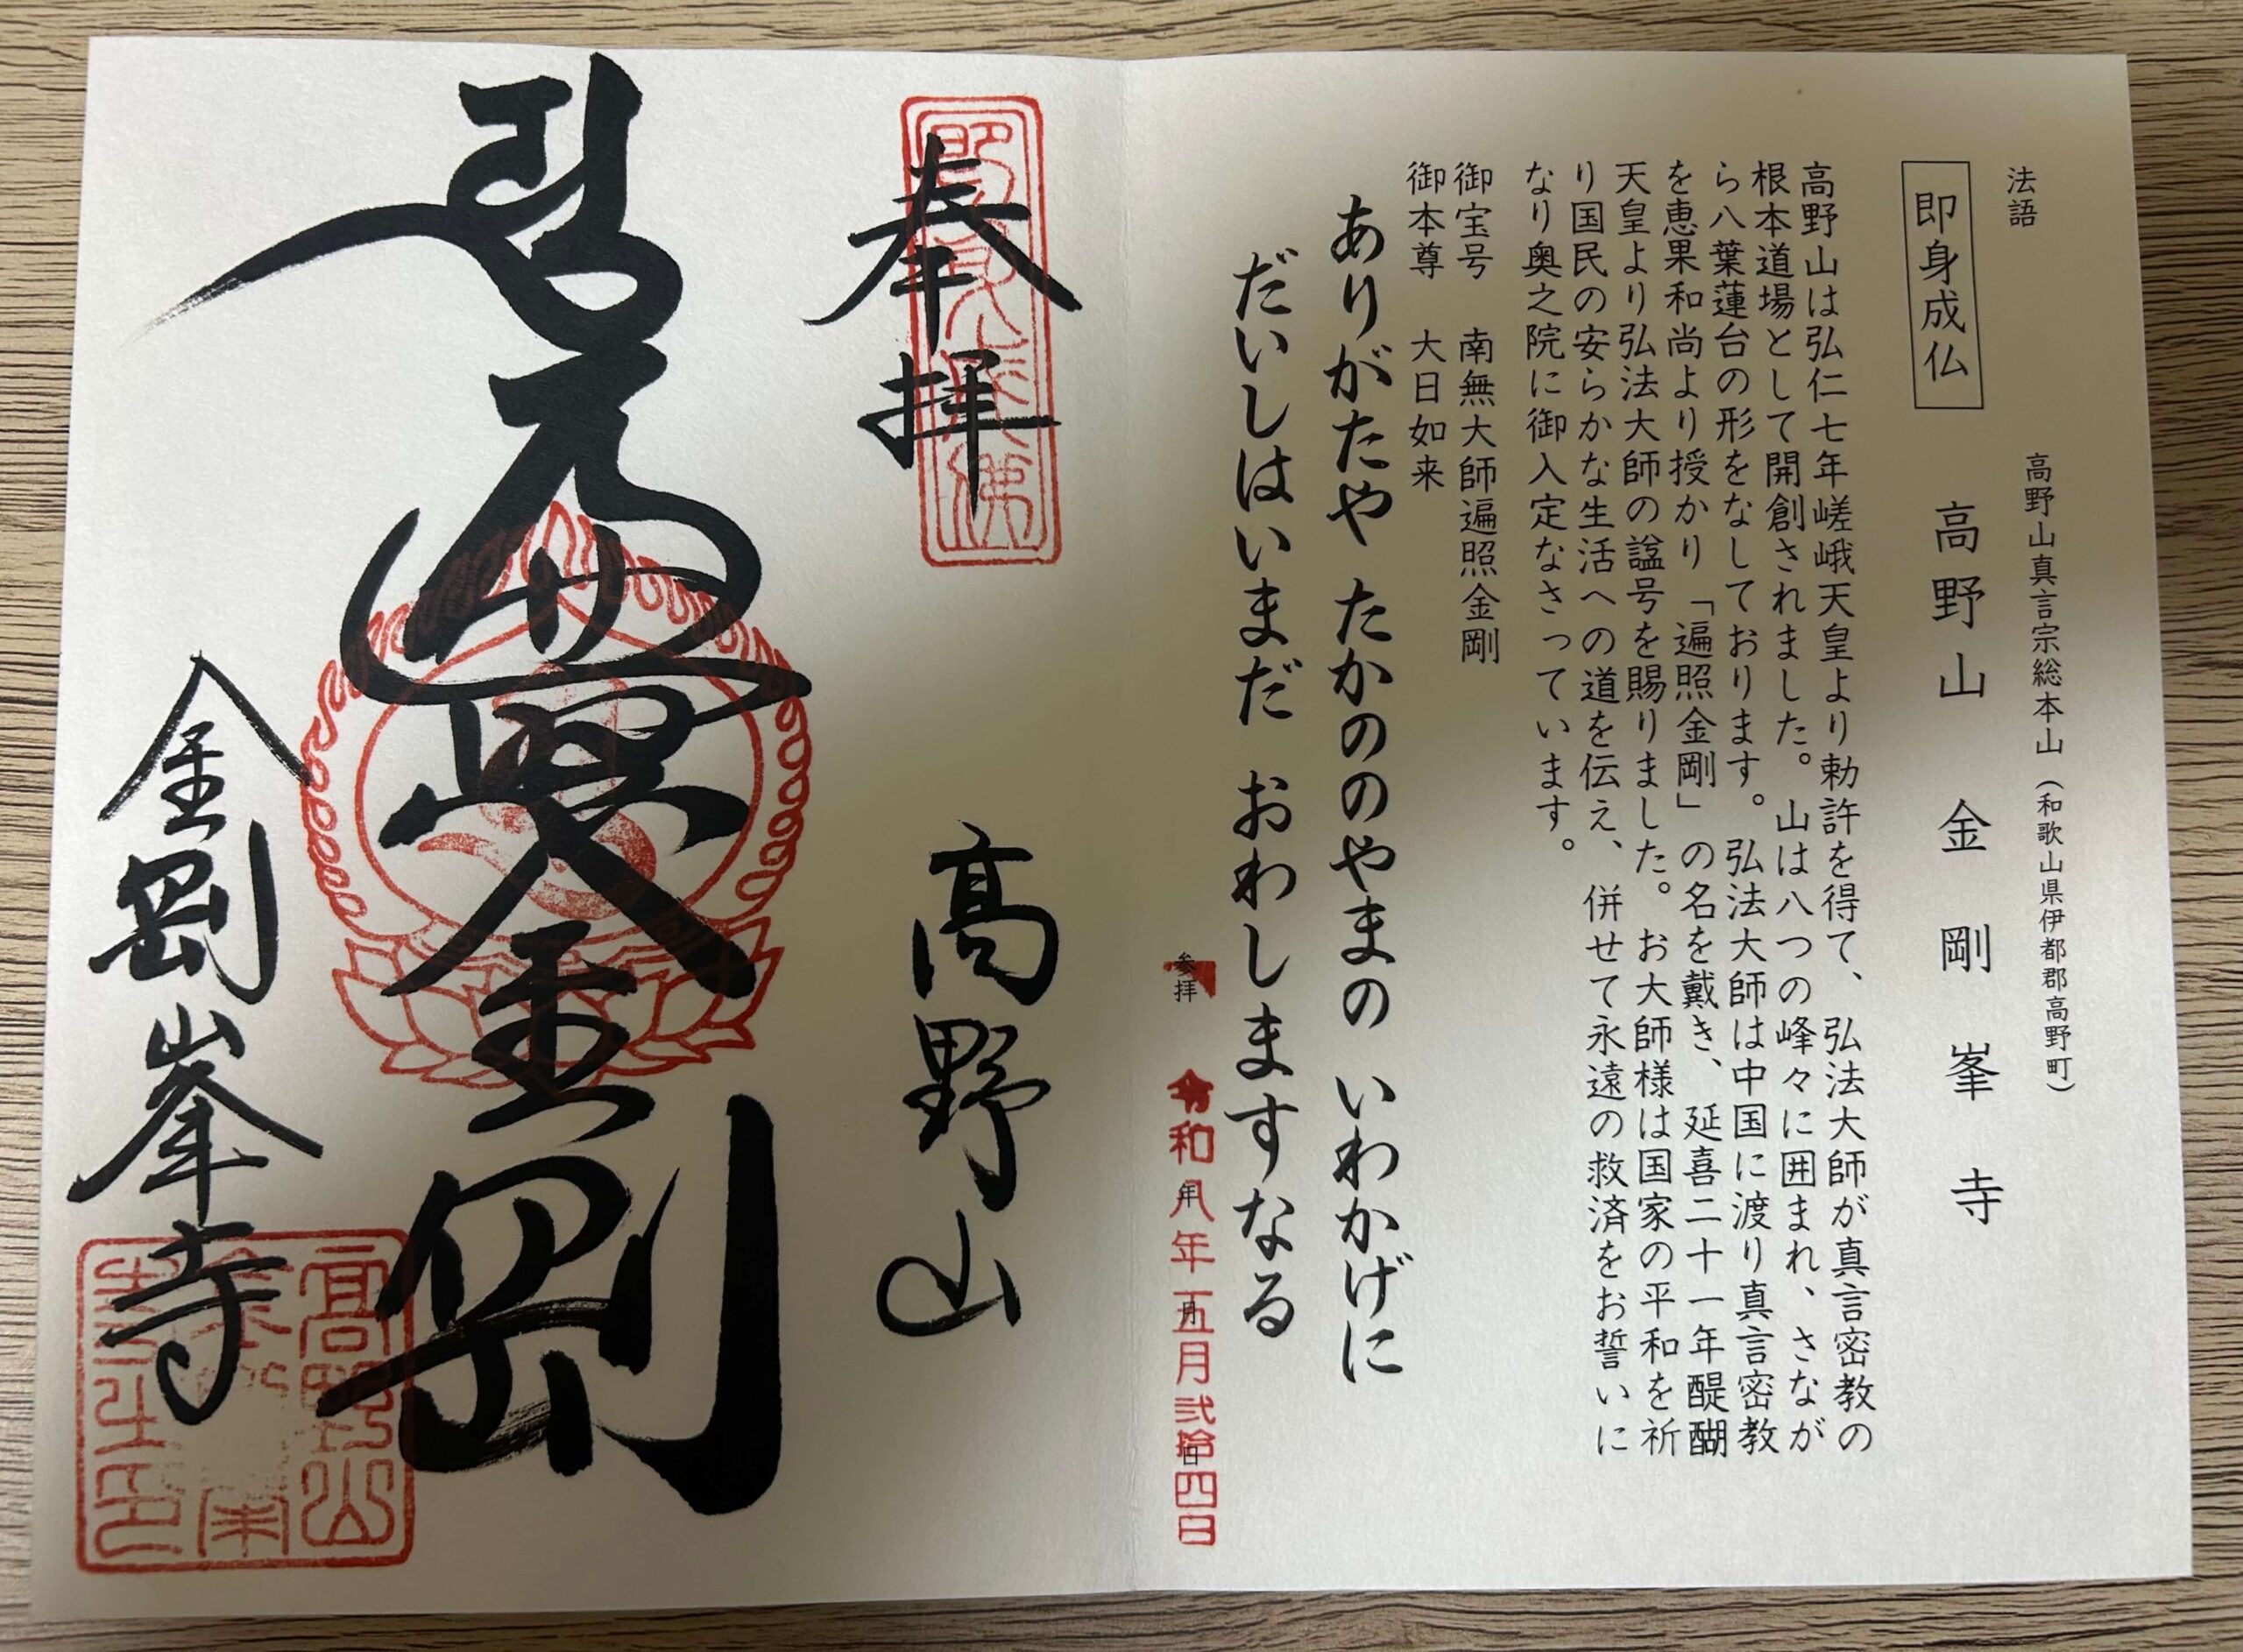 法語
高野山真言宗総本山（和歌山県伊都郡高野町）
即身成仏
高野山 金剛峯寺
高野山は弘仁七年嵯峨天皇より勅許を得て、弘法大師が真言密教の
根本道場として開創されました。山は八つの峰々に囲まれ、さなが
ら八葉蓮台の形をなしております。弘法大師は中国に渡り真言密教
を恵果和尚より授かり「遍照金剛」の名を戴き、延喜二十一年醍醐
天皇より弘法大師の諡号を賜りました。お大師様は国家の平和を祈
り国民の安らかな生活への道を伝え、併せて永遠の救済をお誓いに
なり奥之院に御入定なさっています。
御宝号 南無大師遍照金剛
御本尊 大日如来
ありがたや たかののやまの いわかげに
だいしはいまだ おわしますなる
参拝 年 月 日
令和八年五月弐拾四日
奉拝
高野山
遍照金剛
金剛峯寺
高野山